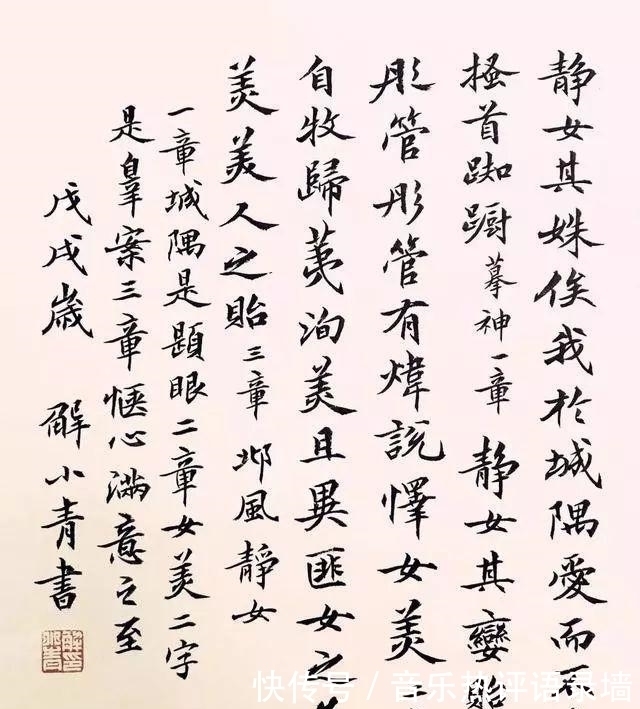 靜女其姝俟我於城隅愛而
搔首踟蹰摹神一章靜女其孌貽
彤管彤管有煒説懌女美
自牧歸荑洵美且異匪女之
美美人之貽三章邶風靜女
一章城隅是題眼二章女美二字
是辠案三章愜心滿意之至
戊戌歲 解小青書
快传号 / 音乐热评语录墙